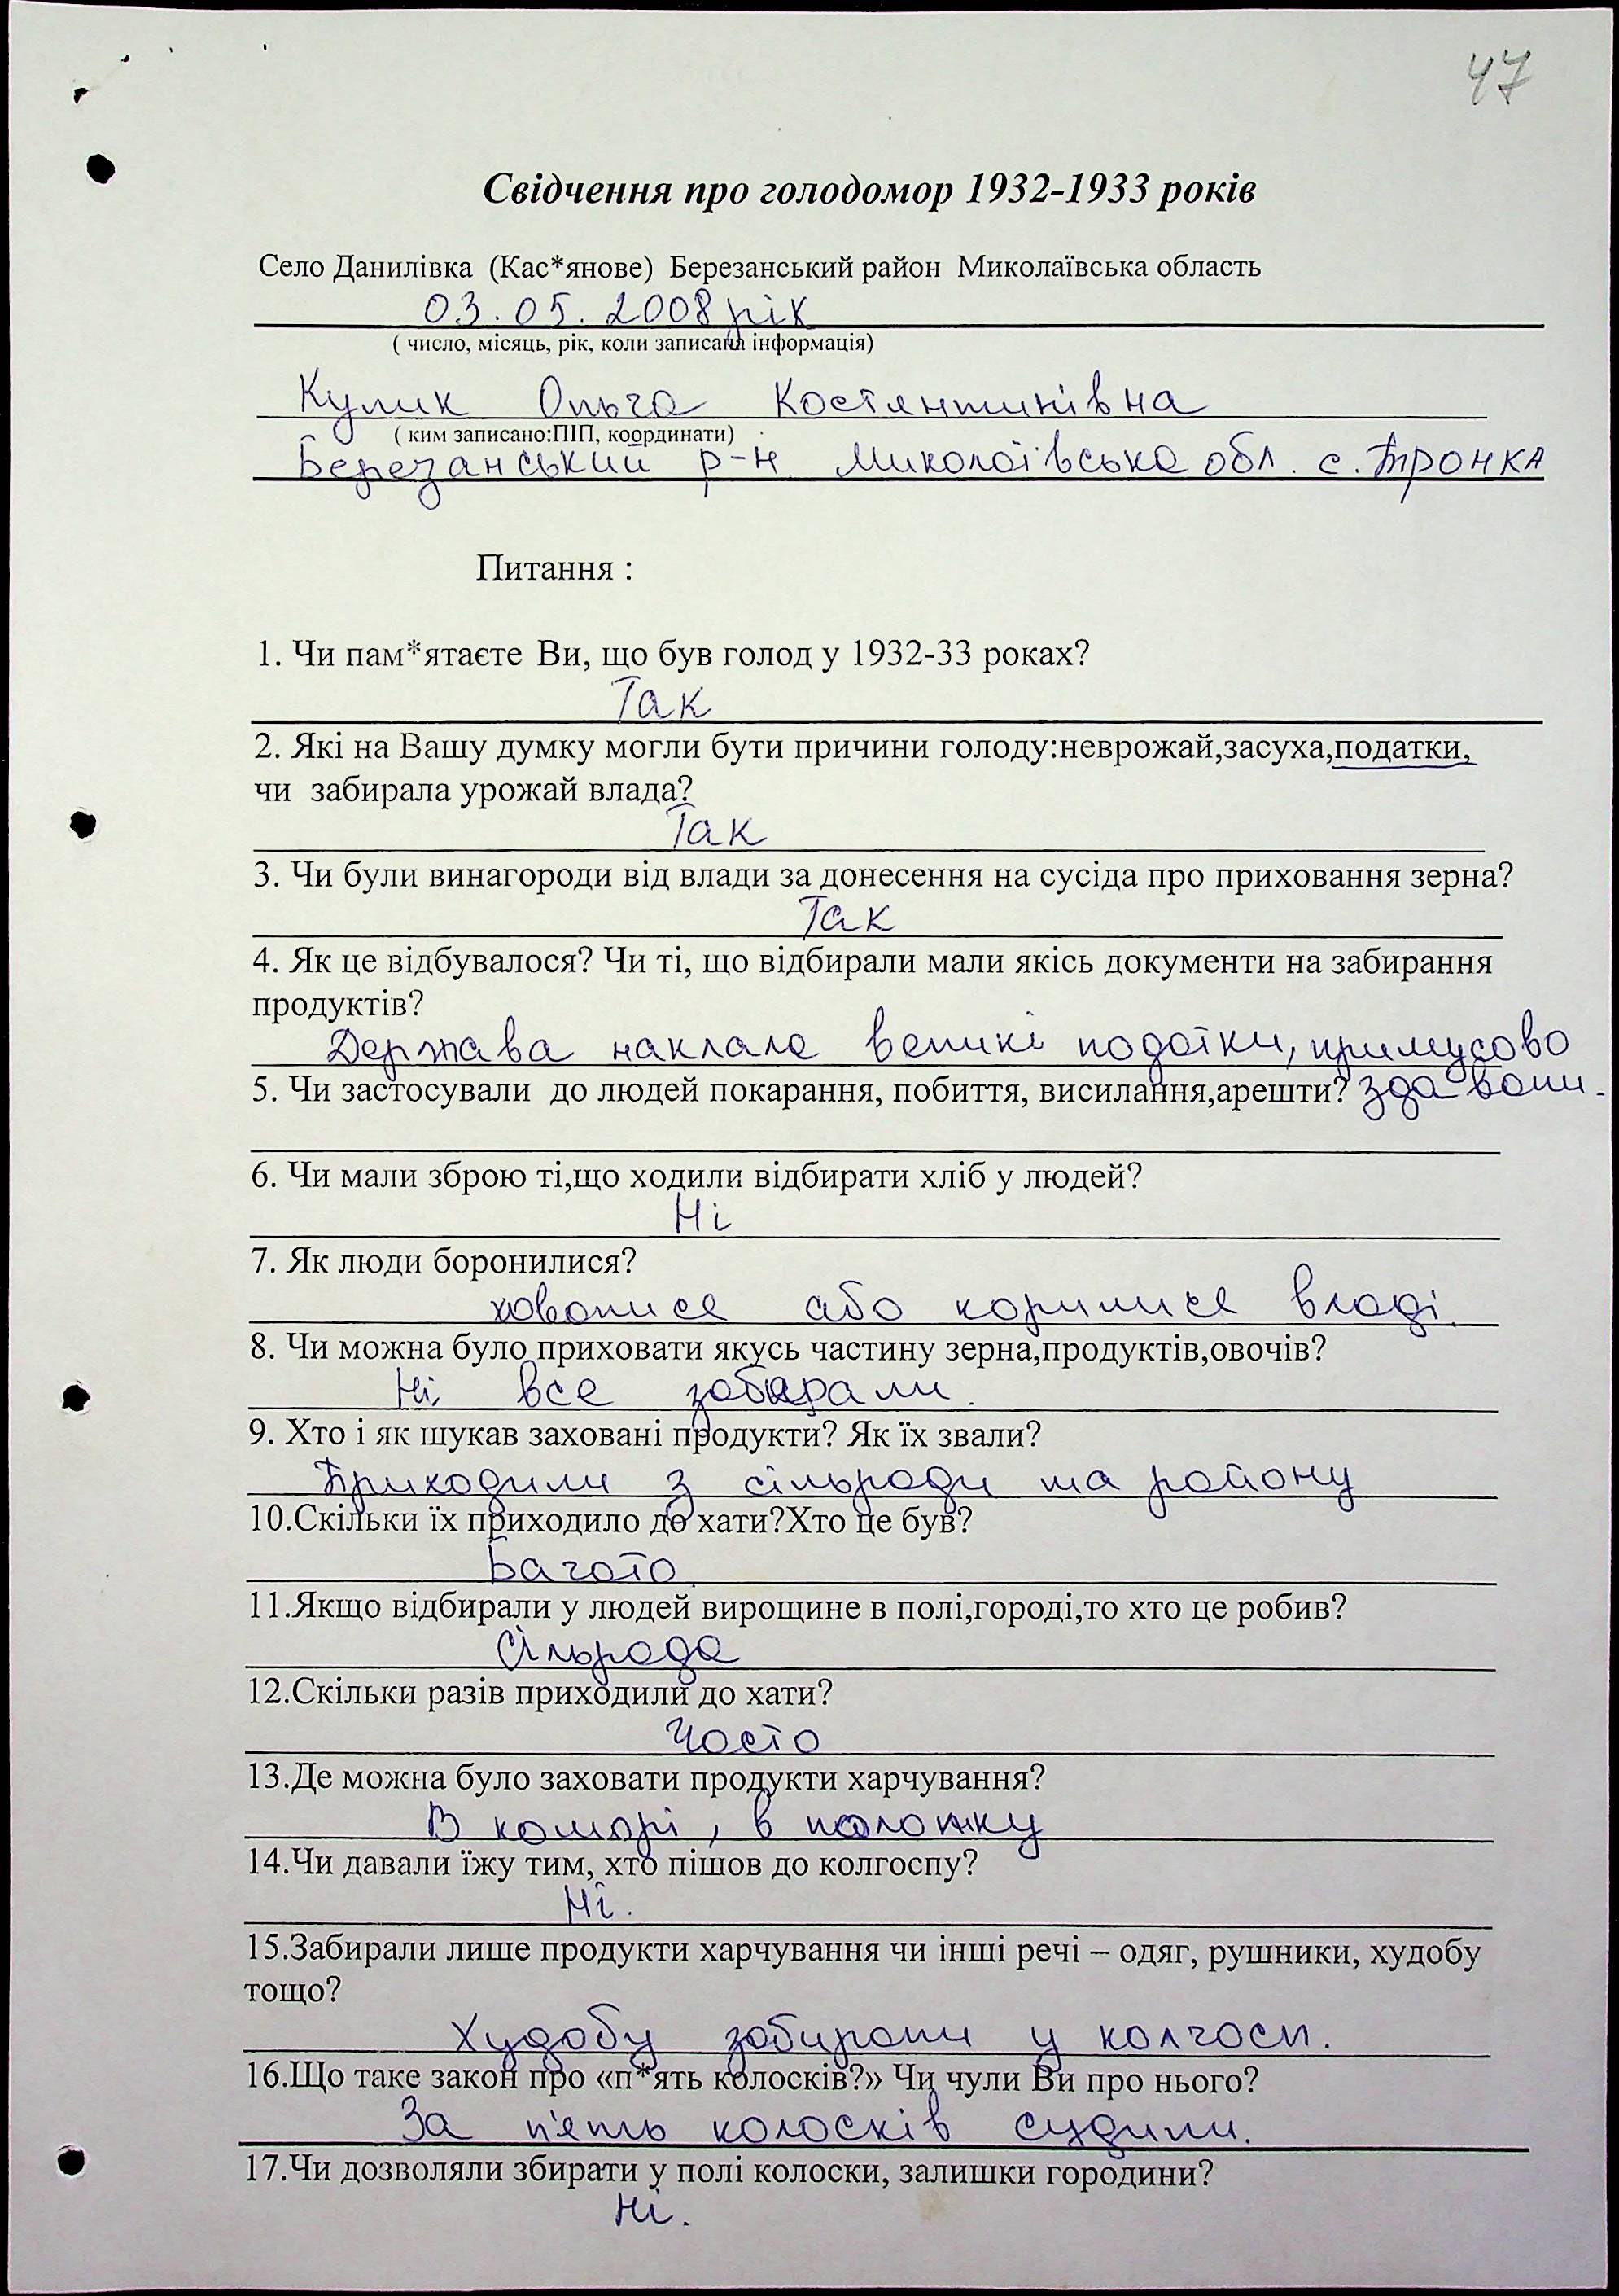 47
Свідчення про голодомор 1932-1933 років
Село Данилівка (Кас*янове) Березанський район Миколаївська область
03.05.2008 рік
( число, місяць, рік, коли записана інформація)
Кулик Ольга Костянтинівна
( ким записано:ПІП, координати)
Березанський р-н Миколаївська обл. с. Тронка
Питання :
1. Чи пам*ятаєте Ви, що був голод у 1932-33 роках?
Так
2. Які на Вашу думку могли бути причини голоду:неврожай,засуха,податки,
чи забирала урожай влада?
Так
3. Чи були винагороди від влади за донесення на сусіда про приховання зерна?
Так
4. Як це відбувалося? Чи ті, що відбирали мали якісь документи на забирання
продуктів?
Держава наклала великі податки, примусово
5. Чи застосували до людей покарання, побиття, висилання,арешти? здавали.
6. Чи мали зброю ті,що ходили відбирати хліб у людей?
Ні
7. Як люди боронилися?
ховалися або корилися владі.
8. Чи можна було приховати якусь частину зерна,продуктів,овочів?
Ні, все забирали.
9. Хто і як шукав заховані продукти? Як їх звали?
Приходили з сільради та району
10.Скільки їх приходило до хати?Хто це був?
Багато.
11.Якщо відбирали у людей вирощине в полі,городі,то хто це робив?
Сільрада
12.Скільки разів приходили до хати?
Часто
13.Де можна було заховати продукти харчування?
В коморі, в
14.Чи давали їжу тим, хто пішов до колгоспу?
Ні.
15.Забирали лише продукти харчування чи інші речі – одяг, рушники, худобу
тощо?
Худобу забирали у колгосп.
16.Що таке закон про «п*ять колосків?» Чи чули Ви про нього?
За п'ять колосків судили.
17.Чи дозволяли збирати у полі колоски, залишки городини?
Ні.